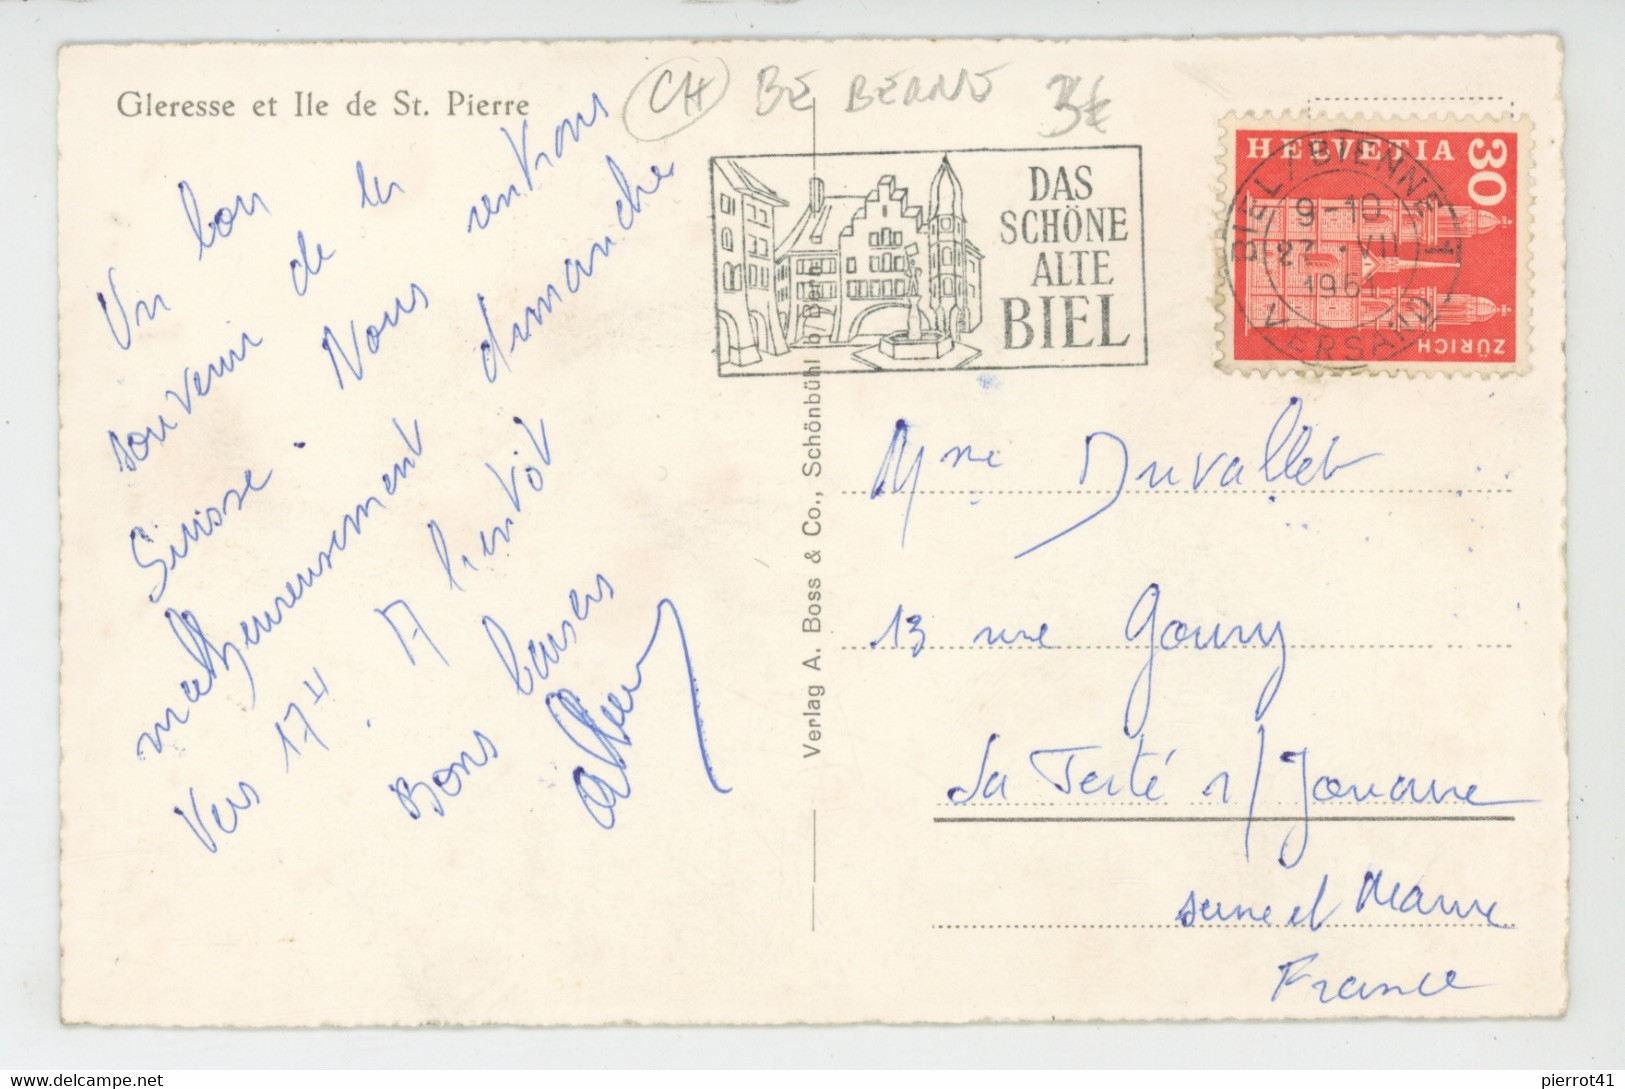 Gleresse et Ile de St. Pierre
CH BE BERNE 3€
Un bon
souvenir de la
Suisse. Nous rentrons
malheureusement dimanche
Vers 17H. A bientôt
Bons baisers
DAS
SCHÖNE
ALTE
BIEL
HELVETIA
30
ZÜRICH
BIEL/BIENNE 1
9-10
27.VII
1961
VERSAND
Verlag A. Boss & Co., Schönbühl b/Bern
Mme Duvallet
13 rue Goury
La Ferté s/Jouarre
seine et Marne
France
pierrot41